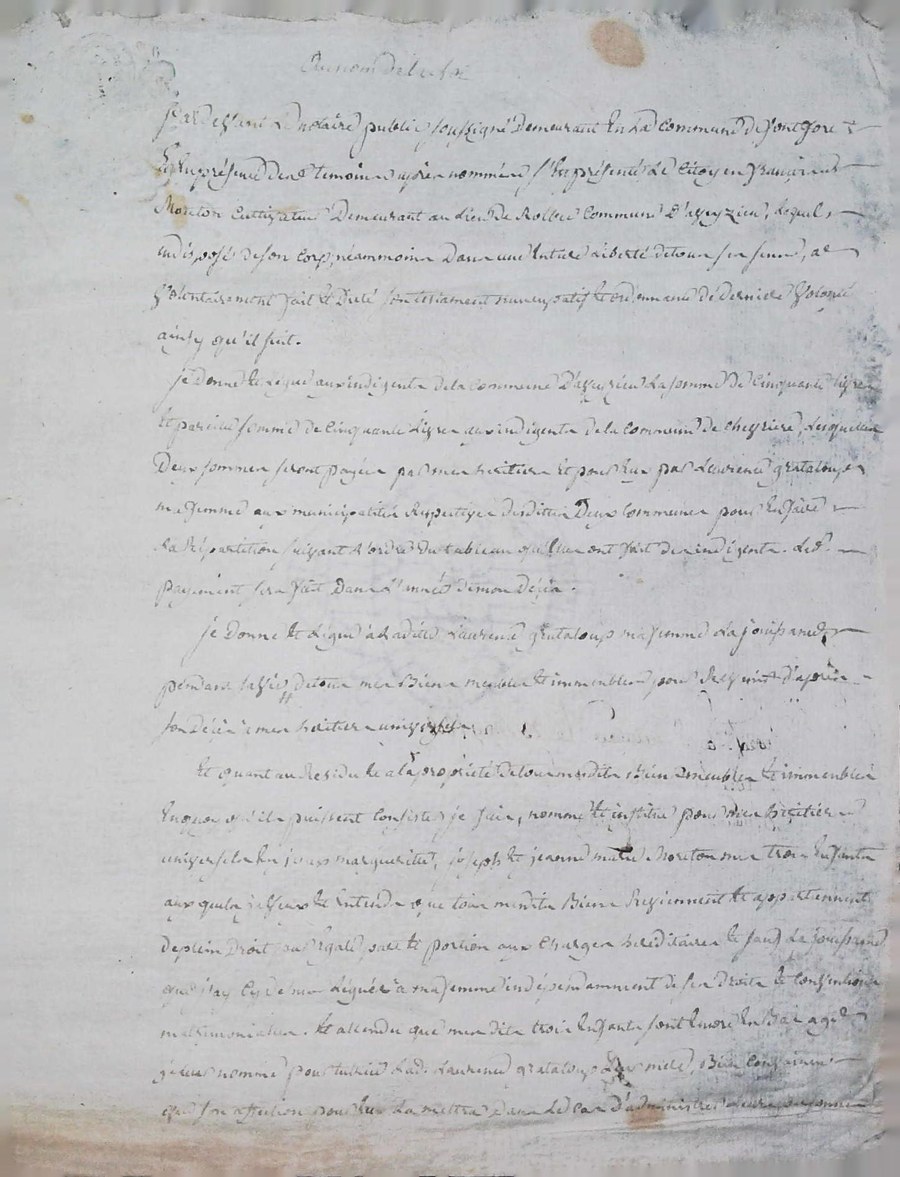 Au nom de la loi
Par devant le notaire public soussigné demeurant en la commune de Montfort
Et en présence des temoins apres nommés s'est présenté le Citoyen françois
Moreton cultivateur demeurant au lieu de commune d'aveyzieu, lequel
indisposé de son corp, néammoins dans une entiere liberté de tous ses sens, a
volontairement fait et dicté son testament nuncupatif et ordonnance de derniere volonté
ainsy qu'il suit.
je donne et legue aux indigents de la commune d'aveyzieu la somme de cinquante livres
et pareille somme de cinquante livres aux indigents de la commune de cheyrieres, lesquelles
deux sommes seront payées par mes heritiers et pour eux par Laurence grataloup
ma femme aux municipalités respectives desdittes deux communes pour en faire
la répartition suivant l'ordre du tableau qu'elles ont fait des indigents. Led.
payement sera fait dans l'année de mon décès.
je donne et légue à ladite Laurence grataloup ma femme la jouissance
pendant sa vie de tous mes biens meubles et immeubles pour d'après
son décès à mes heritiers universels
Et quant au residu et a la propriété de tous mesdits biens meubles et immeubles
en quoi qu'ils puissent consister je fais, nomme et institue pour mes heritiers
universels marguerite, joseph et jeanne marie Moreton mes trois enfants
aux quels je veux et entends que tous mesdits biens reviennent et appartiennent
de plein droit par égale part et portion aux charges hereditaires et sauf la jouissance
que j'ay cy dessus léguée à ma femme indépendamment de ses droits et conventions
matrimoniales. Et attendu que mesdits trois enfants sont encore en bas age
je leur nomme pour tutrice lad. Laurence grataloup leur mere, bien convaincu
que son affection pour eux la mettra dans le cas d'administrer leurs personnes